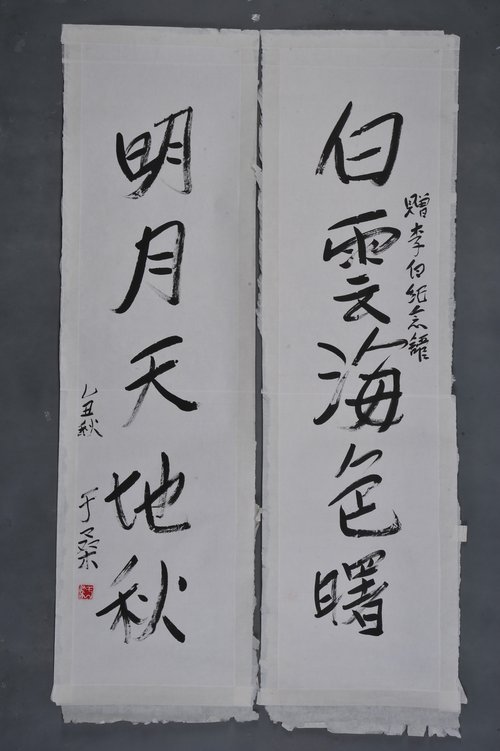 白雲海色曙
贈李白纪念館
明月天地秋
乙丑秋
于桑